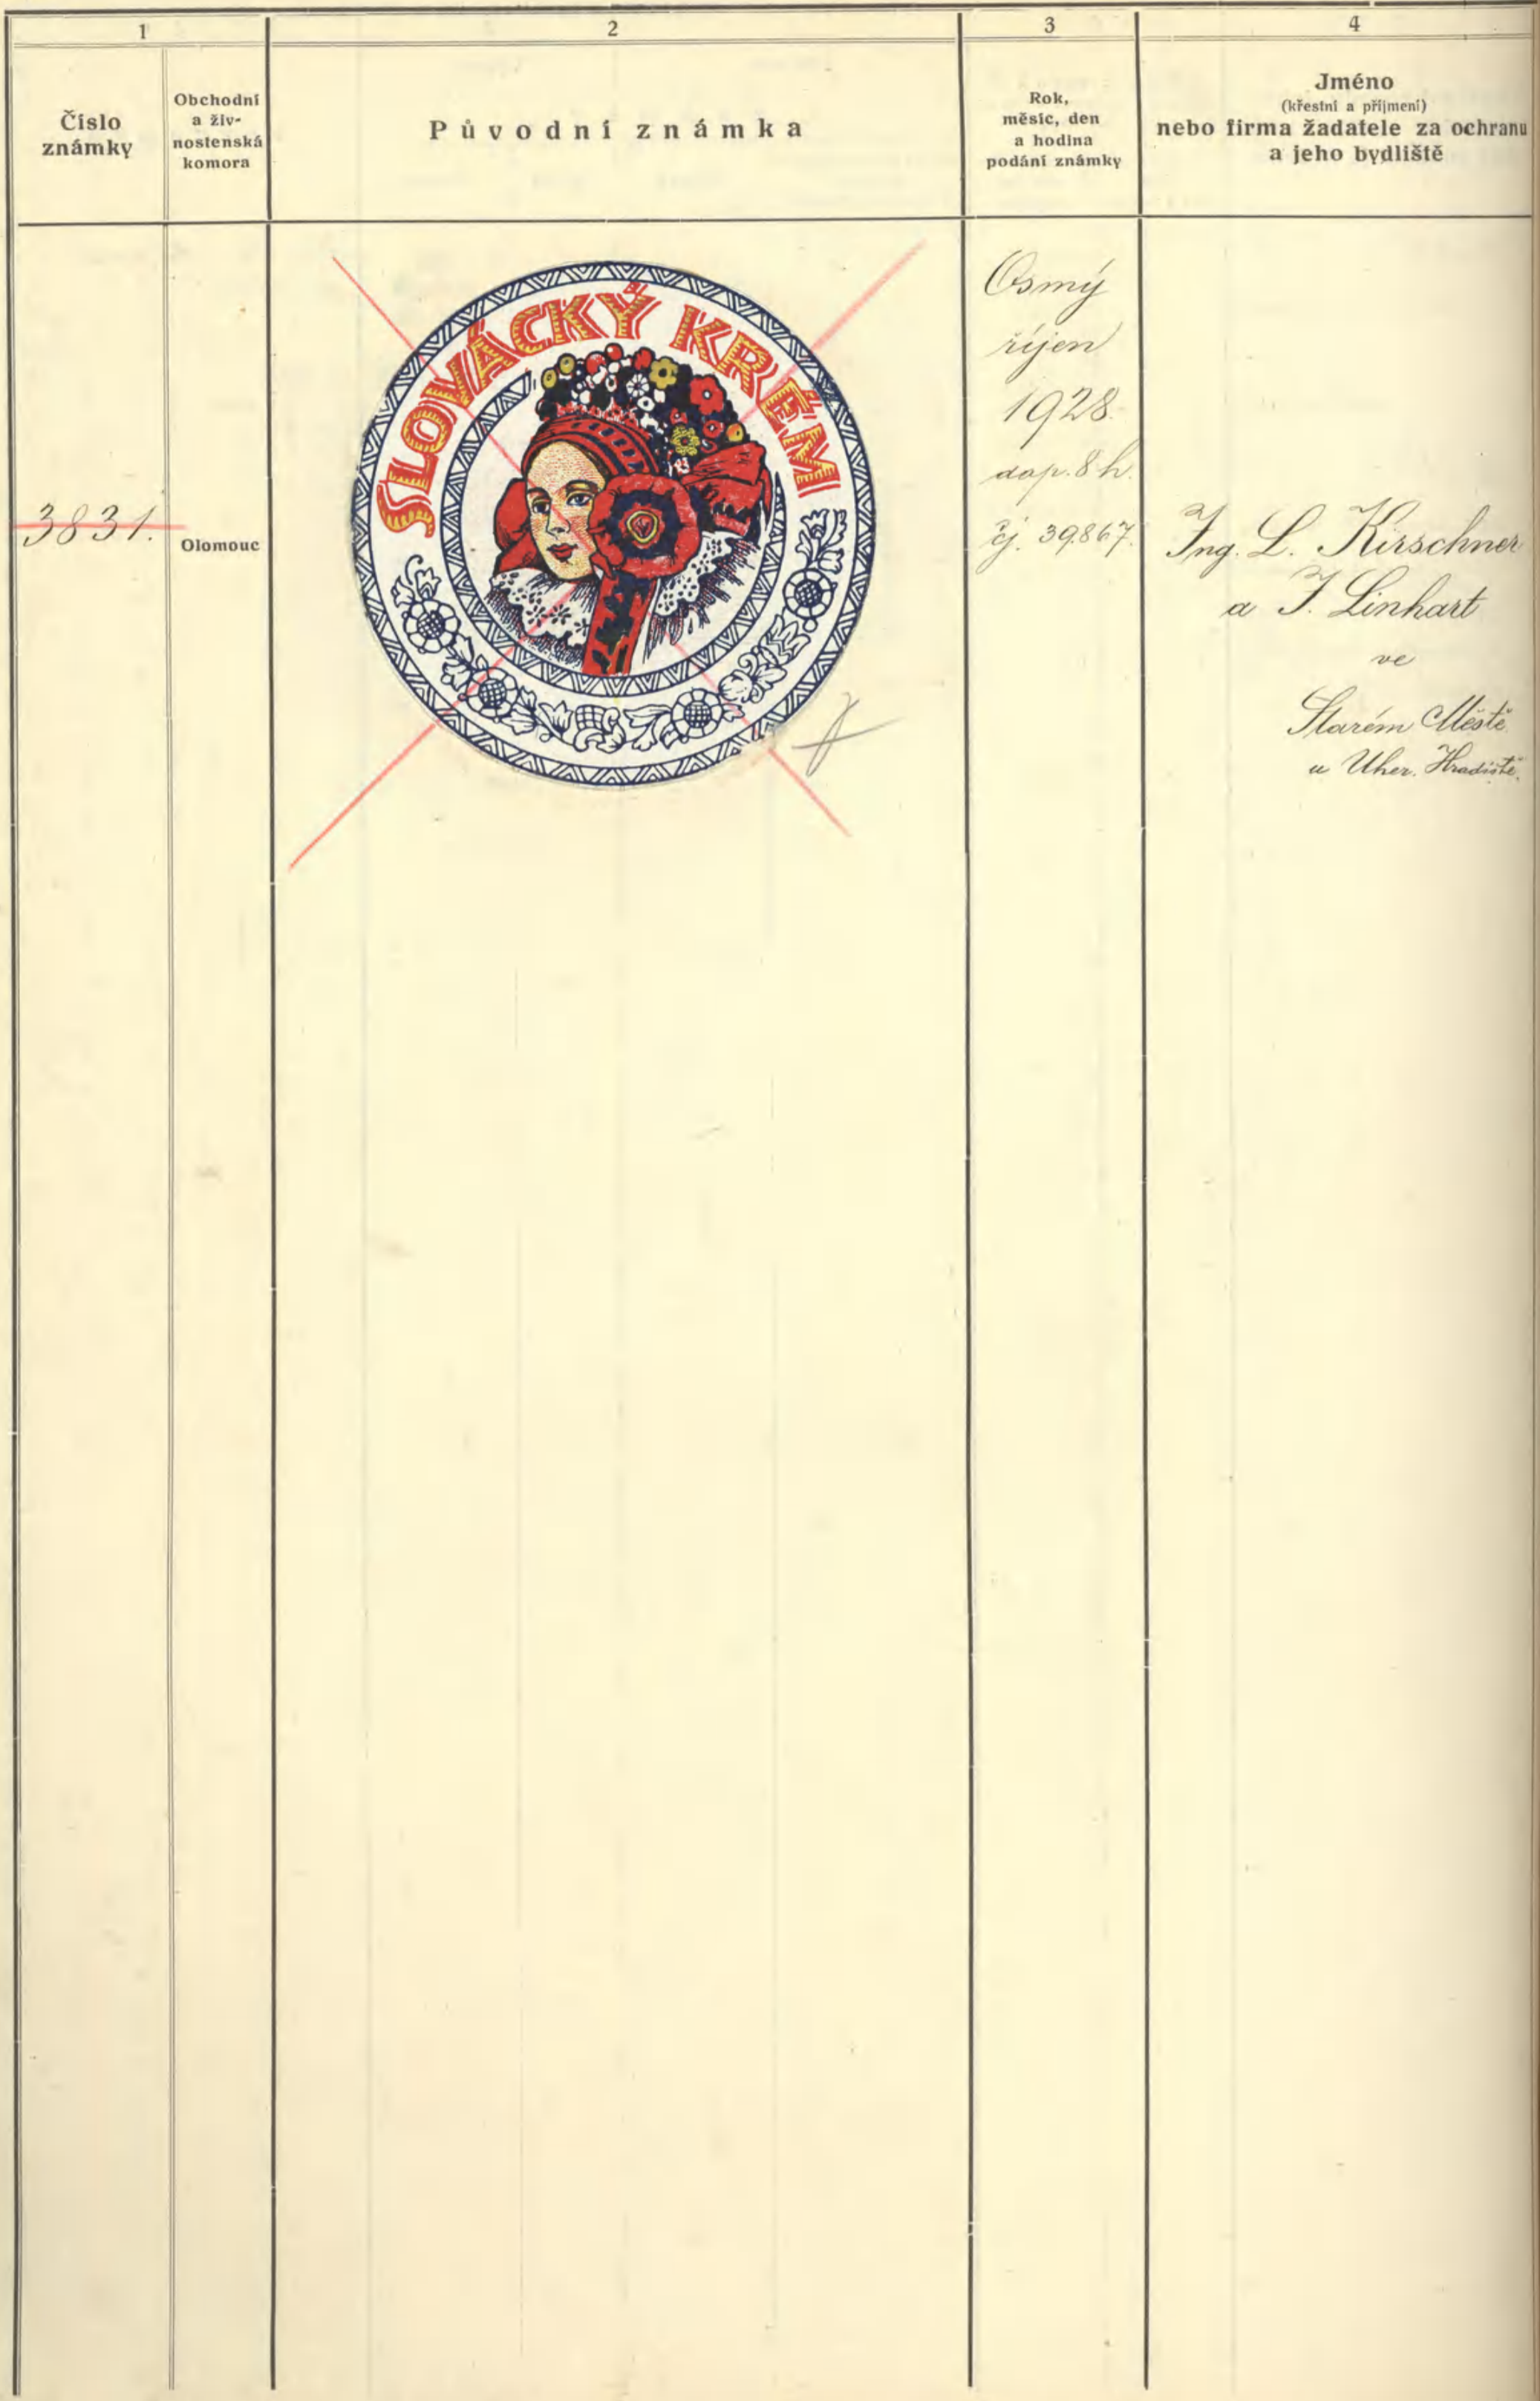 1
2
3
4
Číslo
známky
Obchodní
a živ-
nostenská
komora
Původní známka
Rok,
měsíc, den
a hodina
podání známky
Jméno
(křestní a příjmení)
nebo firma žadatele za ochranu
a jeho bydliště
3831.
Olomouc
SLOVÁCKÝ KRÉM
Osmý
říjen
1928
dop. 8 h.
čj. 39.867.
Ing. L. Kirschner
a J. Linhart
ve
Starém Městě
u Uher. Hradiště.